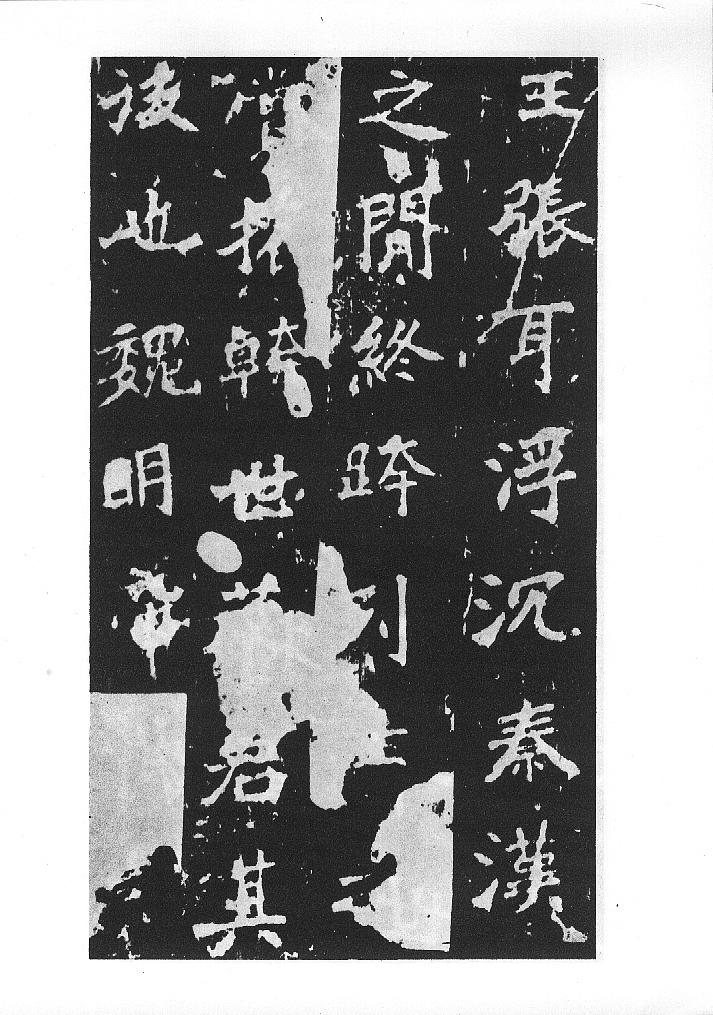 王張耳浮沉秦漢
之間終跨列土之
賞幹世君其
後也魏明帝